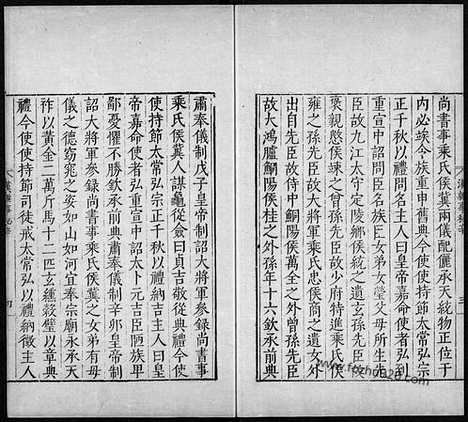 尚書事乘氏侯冀女儀配儷承天統物正位于
內必竢令族重申舊典今使持節太常弘宗
正千秋以禮問名主人曰皇帝嘉命使者弘到
重宣中詔問臣名族臣女弟女瑩父母所生先
臣故九江太守定陵鄉侯統之遺玄孫先臣故
褒親愍侯竦之曾孫先臣故少府特進乘氏侯
雍之孫先臣故大將軍乘氏忠侯商之遺女外
出自先臣故侍中鮦陽侯萬之外曾孫先臣
故大鴻臚鮦陽侯桂之外孫年十六欽承前典
肅奉儀制戊子皇帝制詔大將軍參錄尚書事
乘氏侯冀人謀龜從僉曰貞吉敬從典禮今使
使持節太常弘宗正千秋以禮納吉主人曰皇
帝嘉命使者弘重宣中詔太卜元吉臣陋族卑
鄙憂懼不勝欽承前典肅奉儀制辛卯皇帝制
詔大將軍參錄尚書事乘氏侯冀之女弟有母
儀之德窈窕之姿如山如河宜奉宗廟永承天
祚以黃金二萬斤馬十二匹玄纁穀璧以章典
禮今使使持節司徒戒太常弘以禮納徵主人